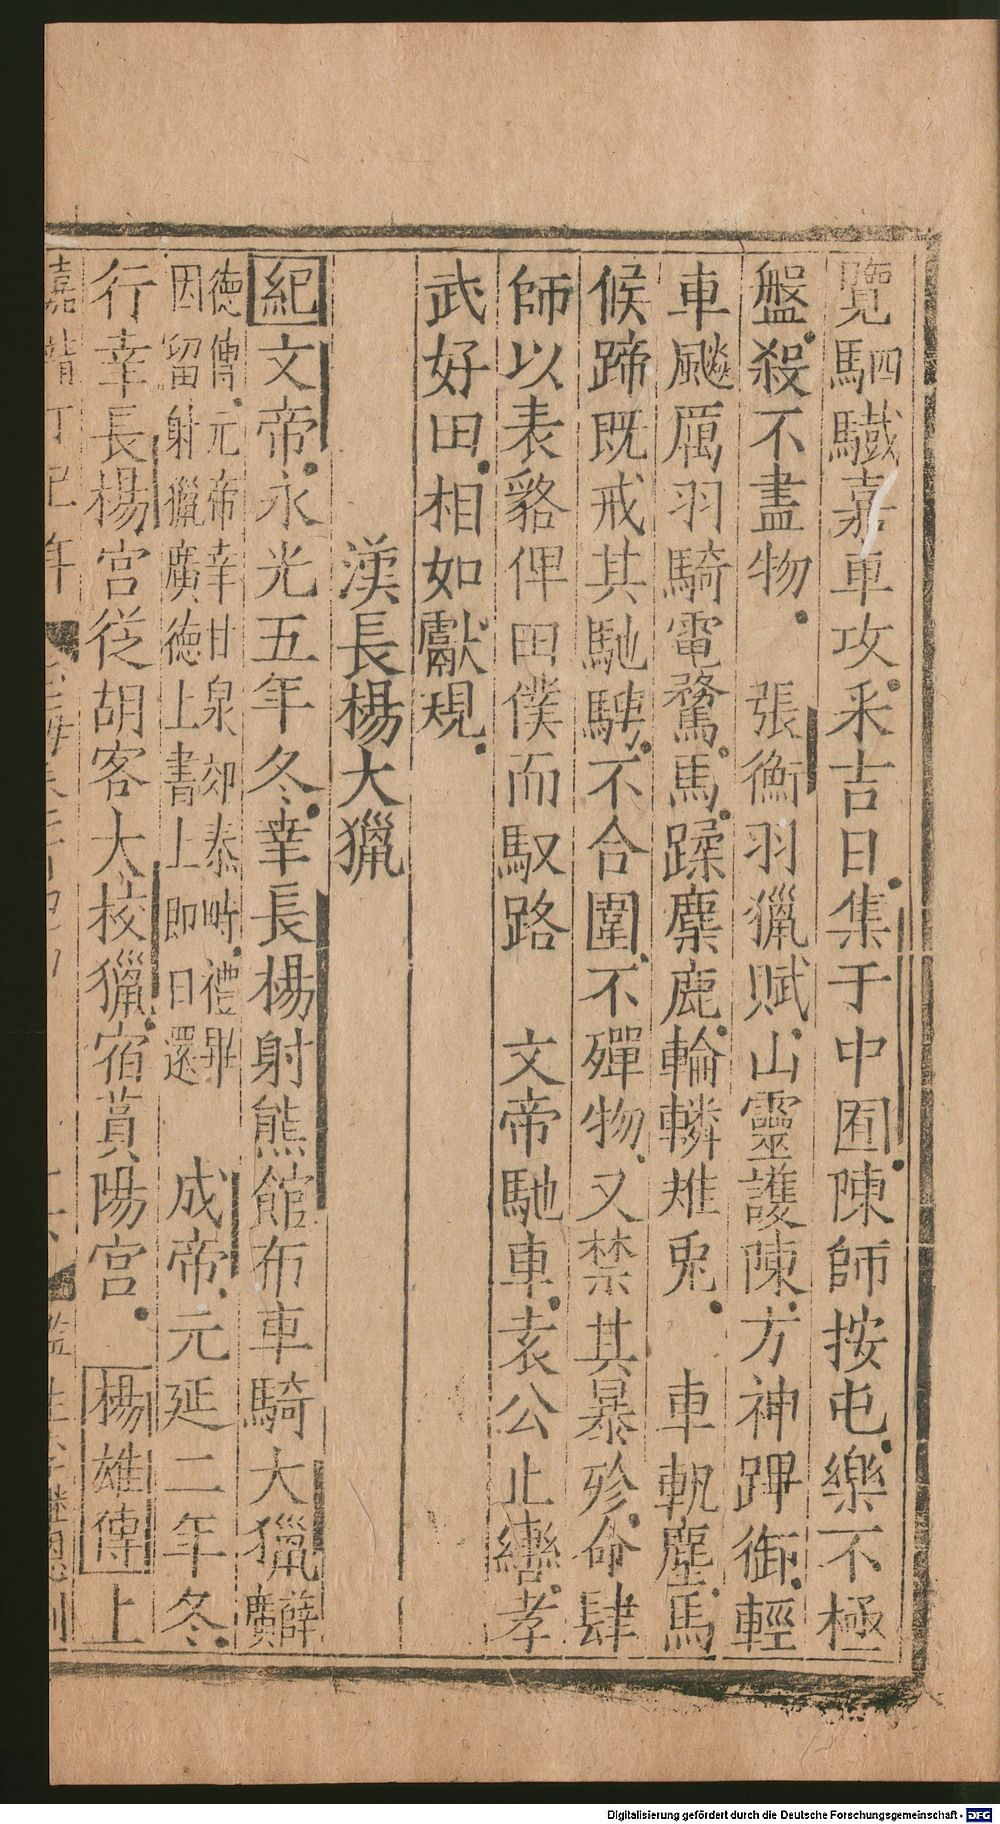 覽駟驖嘉車攻采吉日集于中囿陳師按屯樂不極
盤殺不盡物　張衡羽獵賦山靈護陳方神蹕御輕
車飈厲羽騎電騖馬蹂麋鹿輪轔雉兎　車軓塵馬
候蹄既戒其馳騁不合圍不殫物又禁其暴殄命肆
師以表貉俾田僕而馭路　文帝馳車袁公止轡孝
武好田相如獻規
漢長楊大獵
紀文帝永光五年冬幸長楊射熊館布車騎大獵薛廣
德傳元帝幸甘泉郊泰畤禮畢
因留射獵廣德上書上即日還　成帝元延二年冬
行幸長楊宮從胡客大校獵宿萯陽宮　楊雄傳上
嘉靖丁巳年
Digitalisierung gefördert durch die Deutsche Forschungsgemeinschaft - DFG